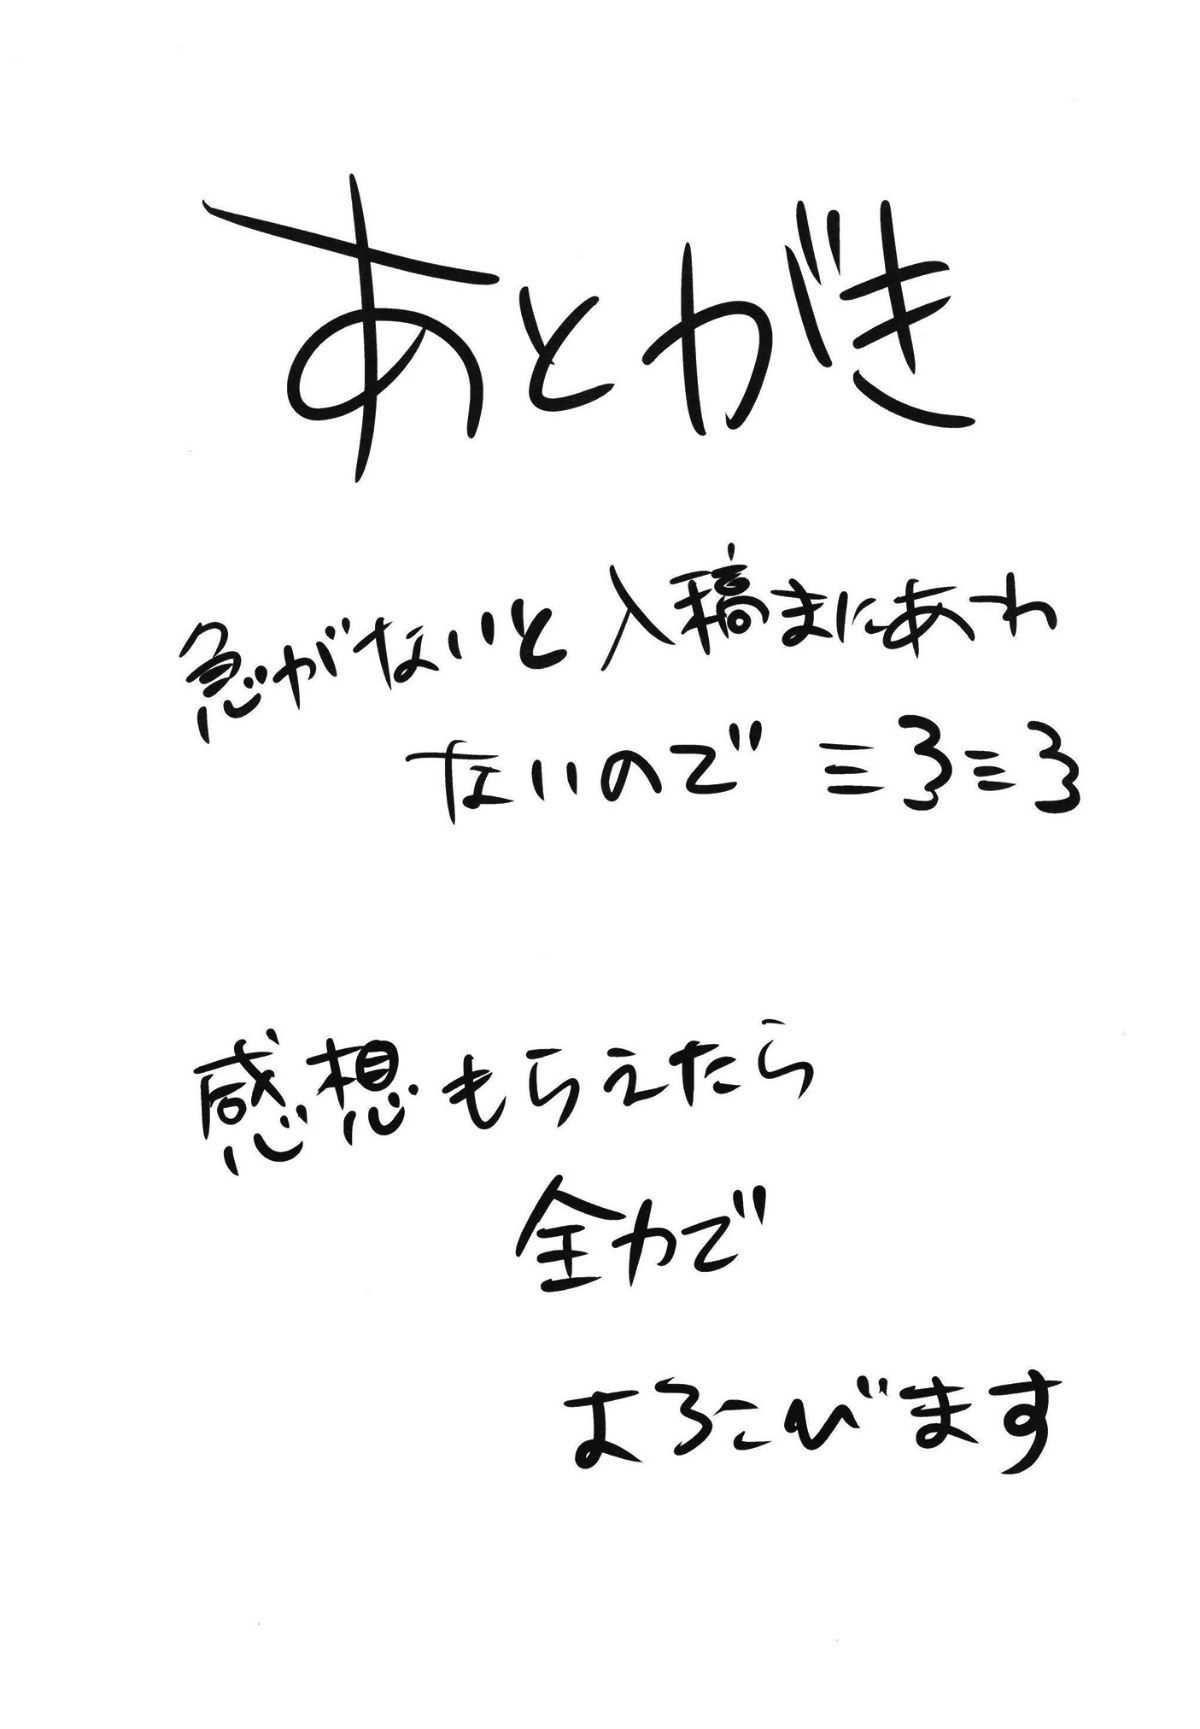 あとがき
急がないと入稿まにあわ
ないので ≡3≡3
感想もらえたら
全力で
よろこびます